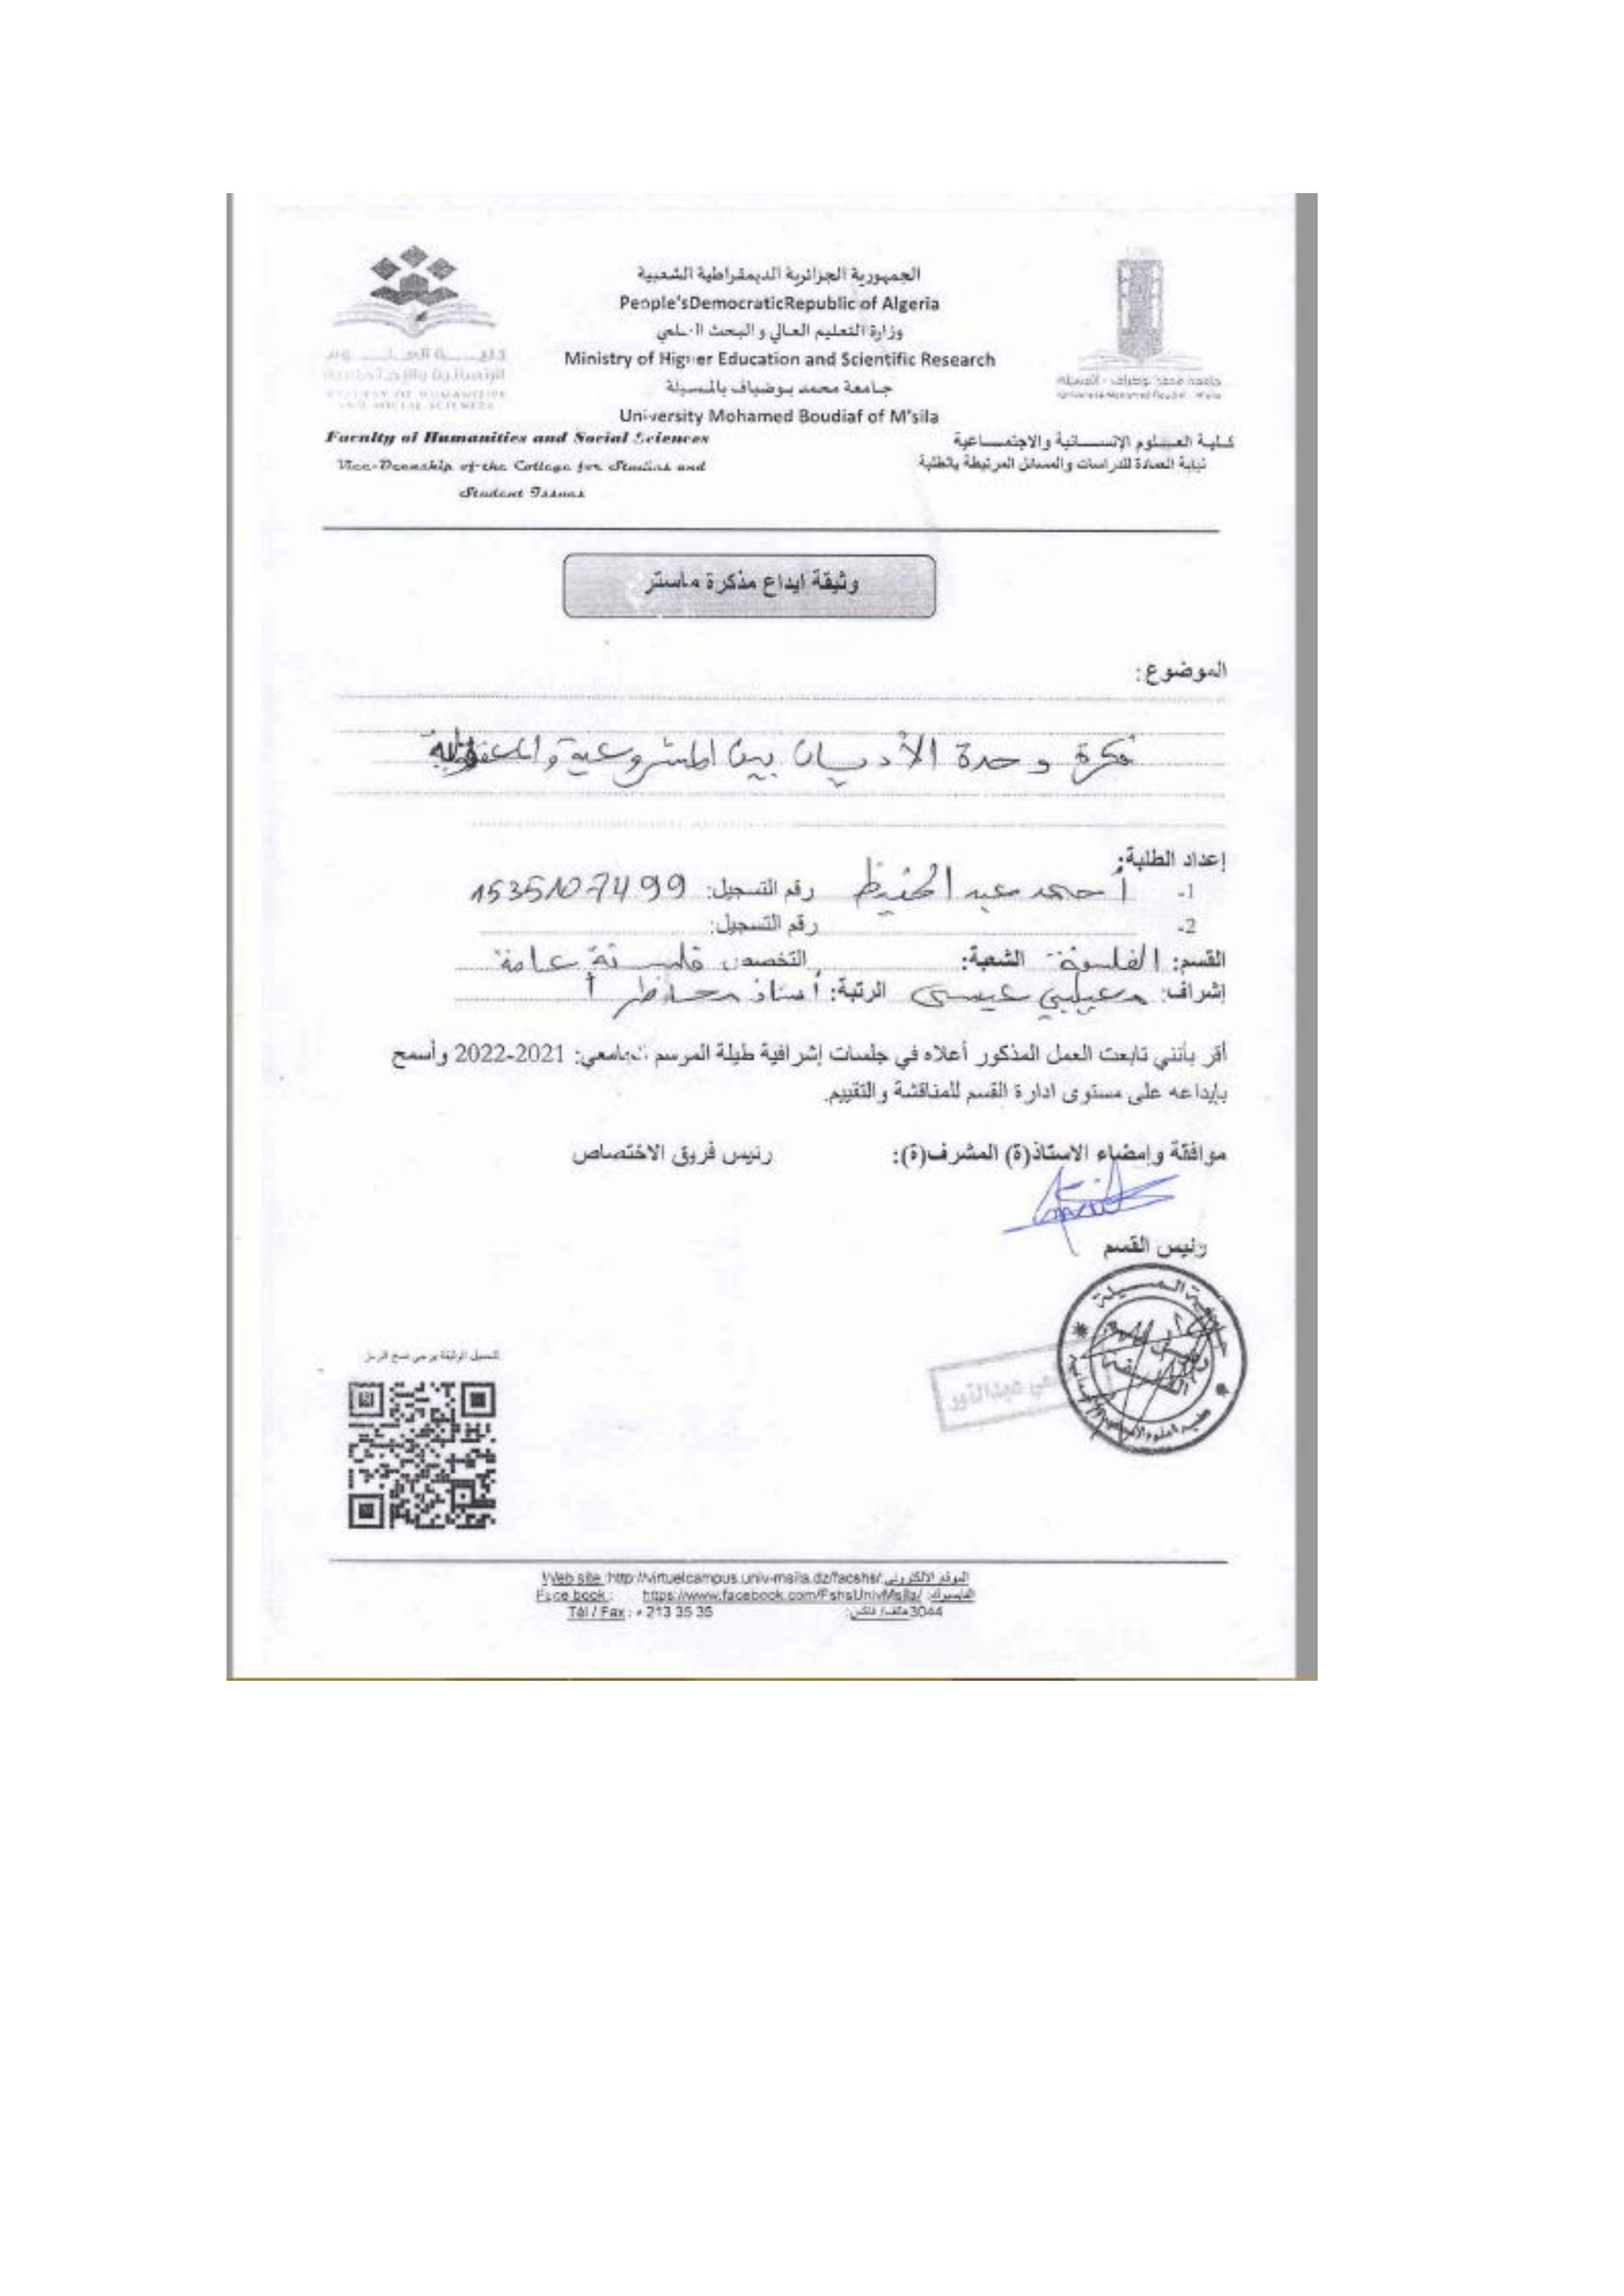 الجمهورية الجزائرية الديمقراطية الشعبية
People'sDemocraticRepublic of Algeria
وزارة التعليم العالي و البحث العلمي
Ministry of Higher Education and Scientific Research
جامعة محمد بوضياف بالمسيلة
University Mohamed Boudiaf of M'sila
جامعة محمد بوضياف - المسيلة
FACULTY OF HUMANITIES
AND SOCIAL SCIENCES
Faculty of Humanities and Social Sciences
كلية العلوم الإنسانية والاجتماعية
Vice-Deanship of the College for Studies and
Student Issues
نيابة العمادة للدراسات والمسائل المرتبطة بالطلبة
وثيقة ايداع مذكرة ماستر
الموضوع:
فكرة وحدة الأديان بين المشروعية والمعقولية
إعداد الطلبة:
1- أحمد عبد الحفيظ رقم التسجيل: 1535107499
2- رقم التسجيل:
القسم: الفلسفة الشعبة: التخصص فلسفة عامة
إشراف: عيسى الرتبة: أستاذ محاضر أ
أقر بأنني تابعت العمل المذكور أعلاه في جلسات إشرافية طيلة الموسم الجامعي: 2021-2022 وأسمح
بإيداعه على مستوى ادارة القسم للمناقشة والتقييم.
موافقة وإمضاء الاستاذ(ة) المشرف(ة): رئيس فريق الاختصاص
رئيس القسم
عبد النور
لتحميل الوثيقة يرجى مسح الرمز
Web site :http://virtuelcampus.univ-msila.dz/facshs/ الموقع الالكتروني
Face book : https://www.facebook.com/FshsUnivMsila/ الفايسبوك:
Tél / Fax : + 213 35 35 3044 هاتف/ فاكس: